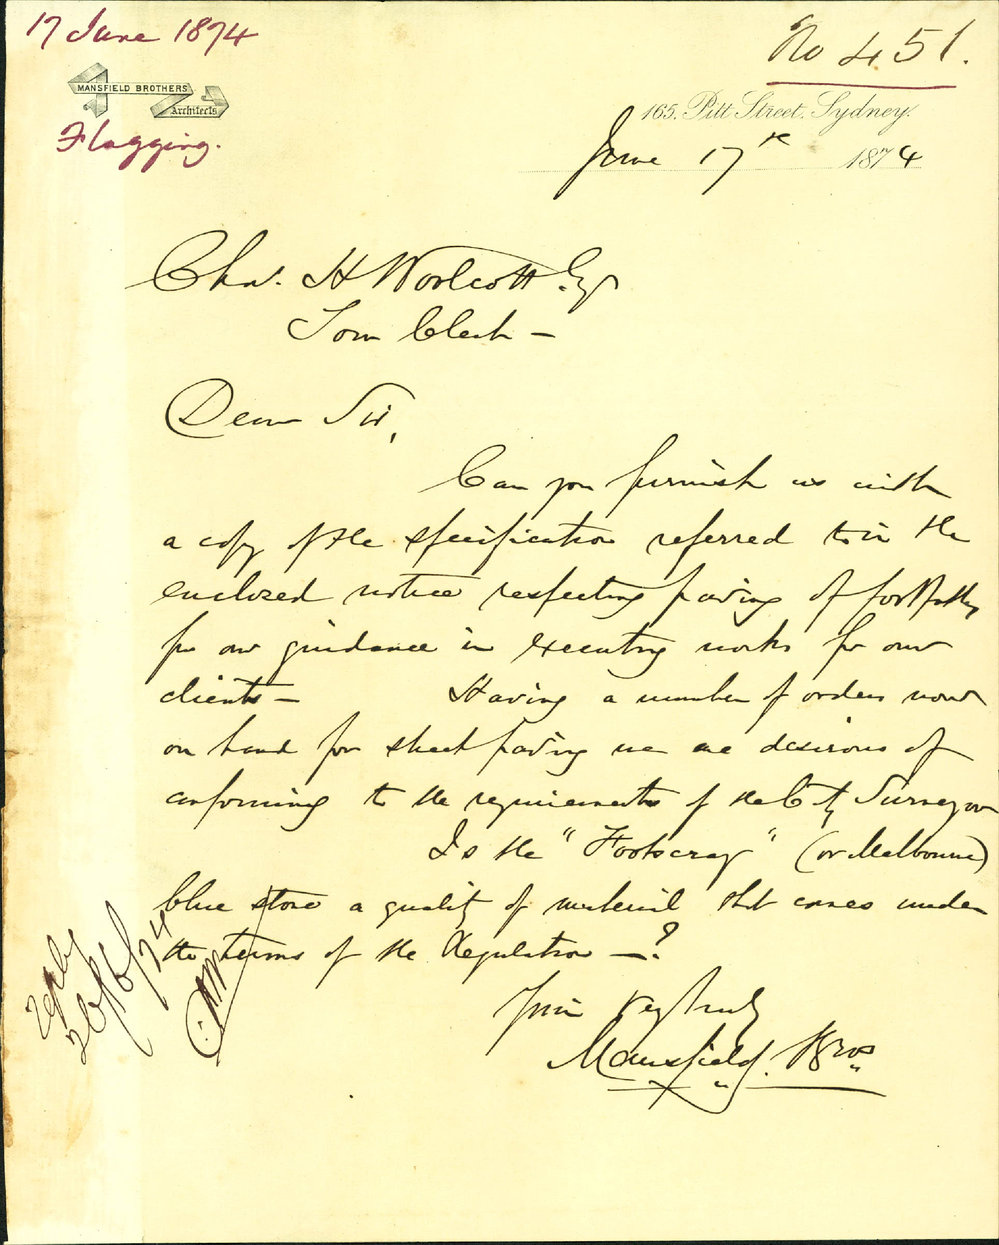 17 June 1874
No 451.
MANSFIELD BROTHERS
Architects
165. Pitt Street. Sydney.
Flagging.
June 17th 1874
Chas. H Woolcott Esq
Town Clerk -
Dear Sir,
Can you furnish us with
a copy of the specification referred to in the
enclosed notice respecting paving of footpaths
for our guidance in executing works for our
clients - Having a number of orders now
on hand for street paving we are desirous of
conforming to the requirements of the City Surveyor
Is the "Footscray" (or Melbourne)
blue stone a quality of material that comes under
the terms of the Regulation -?
Yours Very truly
Mansfield Bros
reply
20/6/74